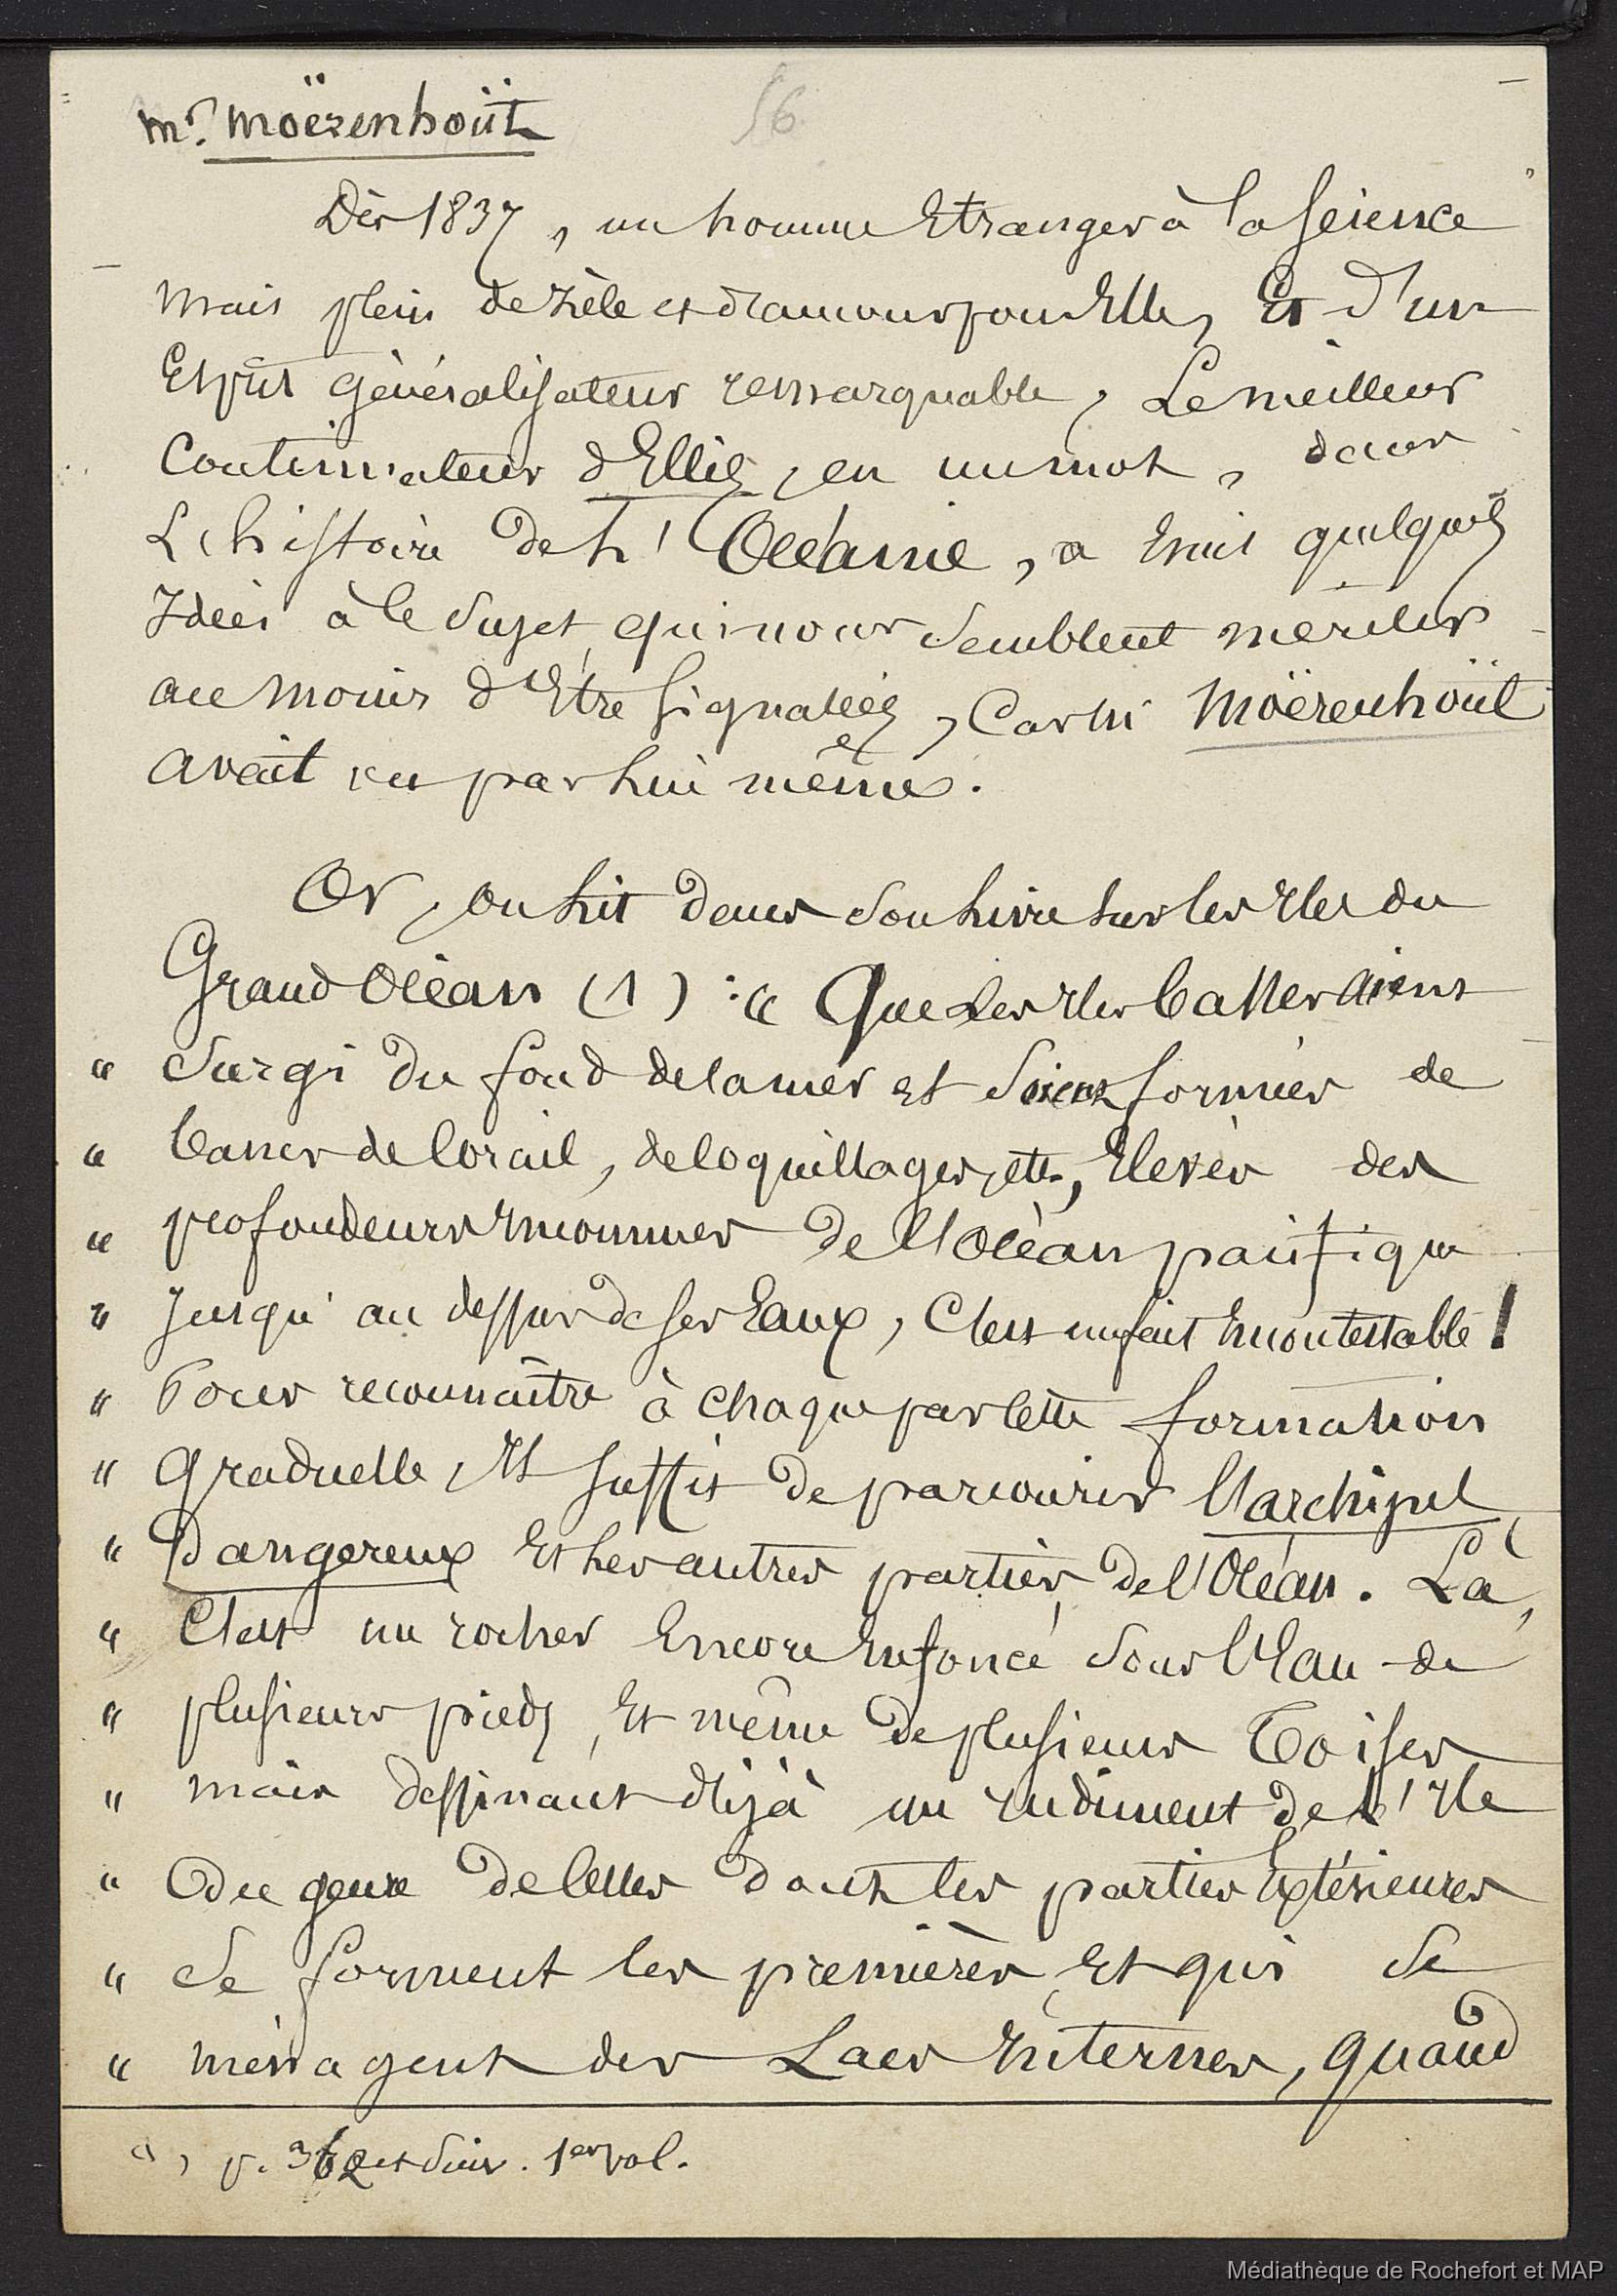 56
mr. Moërenhoüt
Dès 1837, un homme Etranger à la science
mais plein de zèle et d'amour pour Elle, Et d'un
Esprit généralisateur remarquable, Le meilleur
Continuateur d'Ellis, en un mot, dans
L'histoire de L'Océanie, a Emis quelques
Idées à ce Sujet qui nous Semblent mériter
au moins d'Etre signalées, Car Mr Moërenhoüt
avait vu par Lui même.
Or, on Lit dans Son Livre sur les Iles du
Grand Océan (1) : " Que Les Iles basses aient
" Surgi du fond de la mer et Soient formées de
" bancs de Corail, de Coquillages, etc., Elevés des
" profondeurs Enormes de l'Océan pacifique
" Jusqu'au dessus de ses Eaux, C'est un fait Incontestable !
" Pour reconnaître à chaque pas Cette formation
" Graduelle, Il suffit de parcourir l'archipel
" Dangereux Et Les autres parties de l'Océan. Là,
" C'est un rocher Encore Enfoncé Sous l'Eau de
" plusieurs pieds, Et même de plusieurs Toises
" mais dessinant déjà un rudiment de l'Ile
" Du genre de Celles dont les parties Extérieures
" Se forment les premières, Et qui Se
" ménagent des Lacs Internes, quand
(1), p. 362 et Suiv. 1er vol.
Médiathèque de Rochefort et MAP